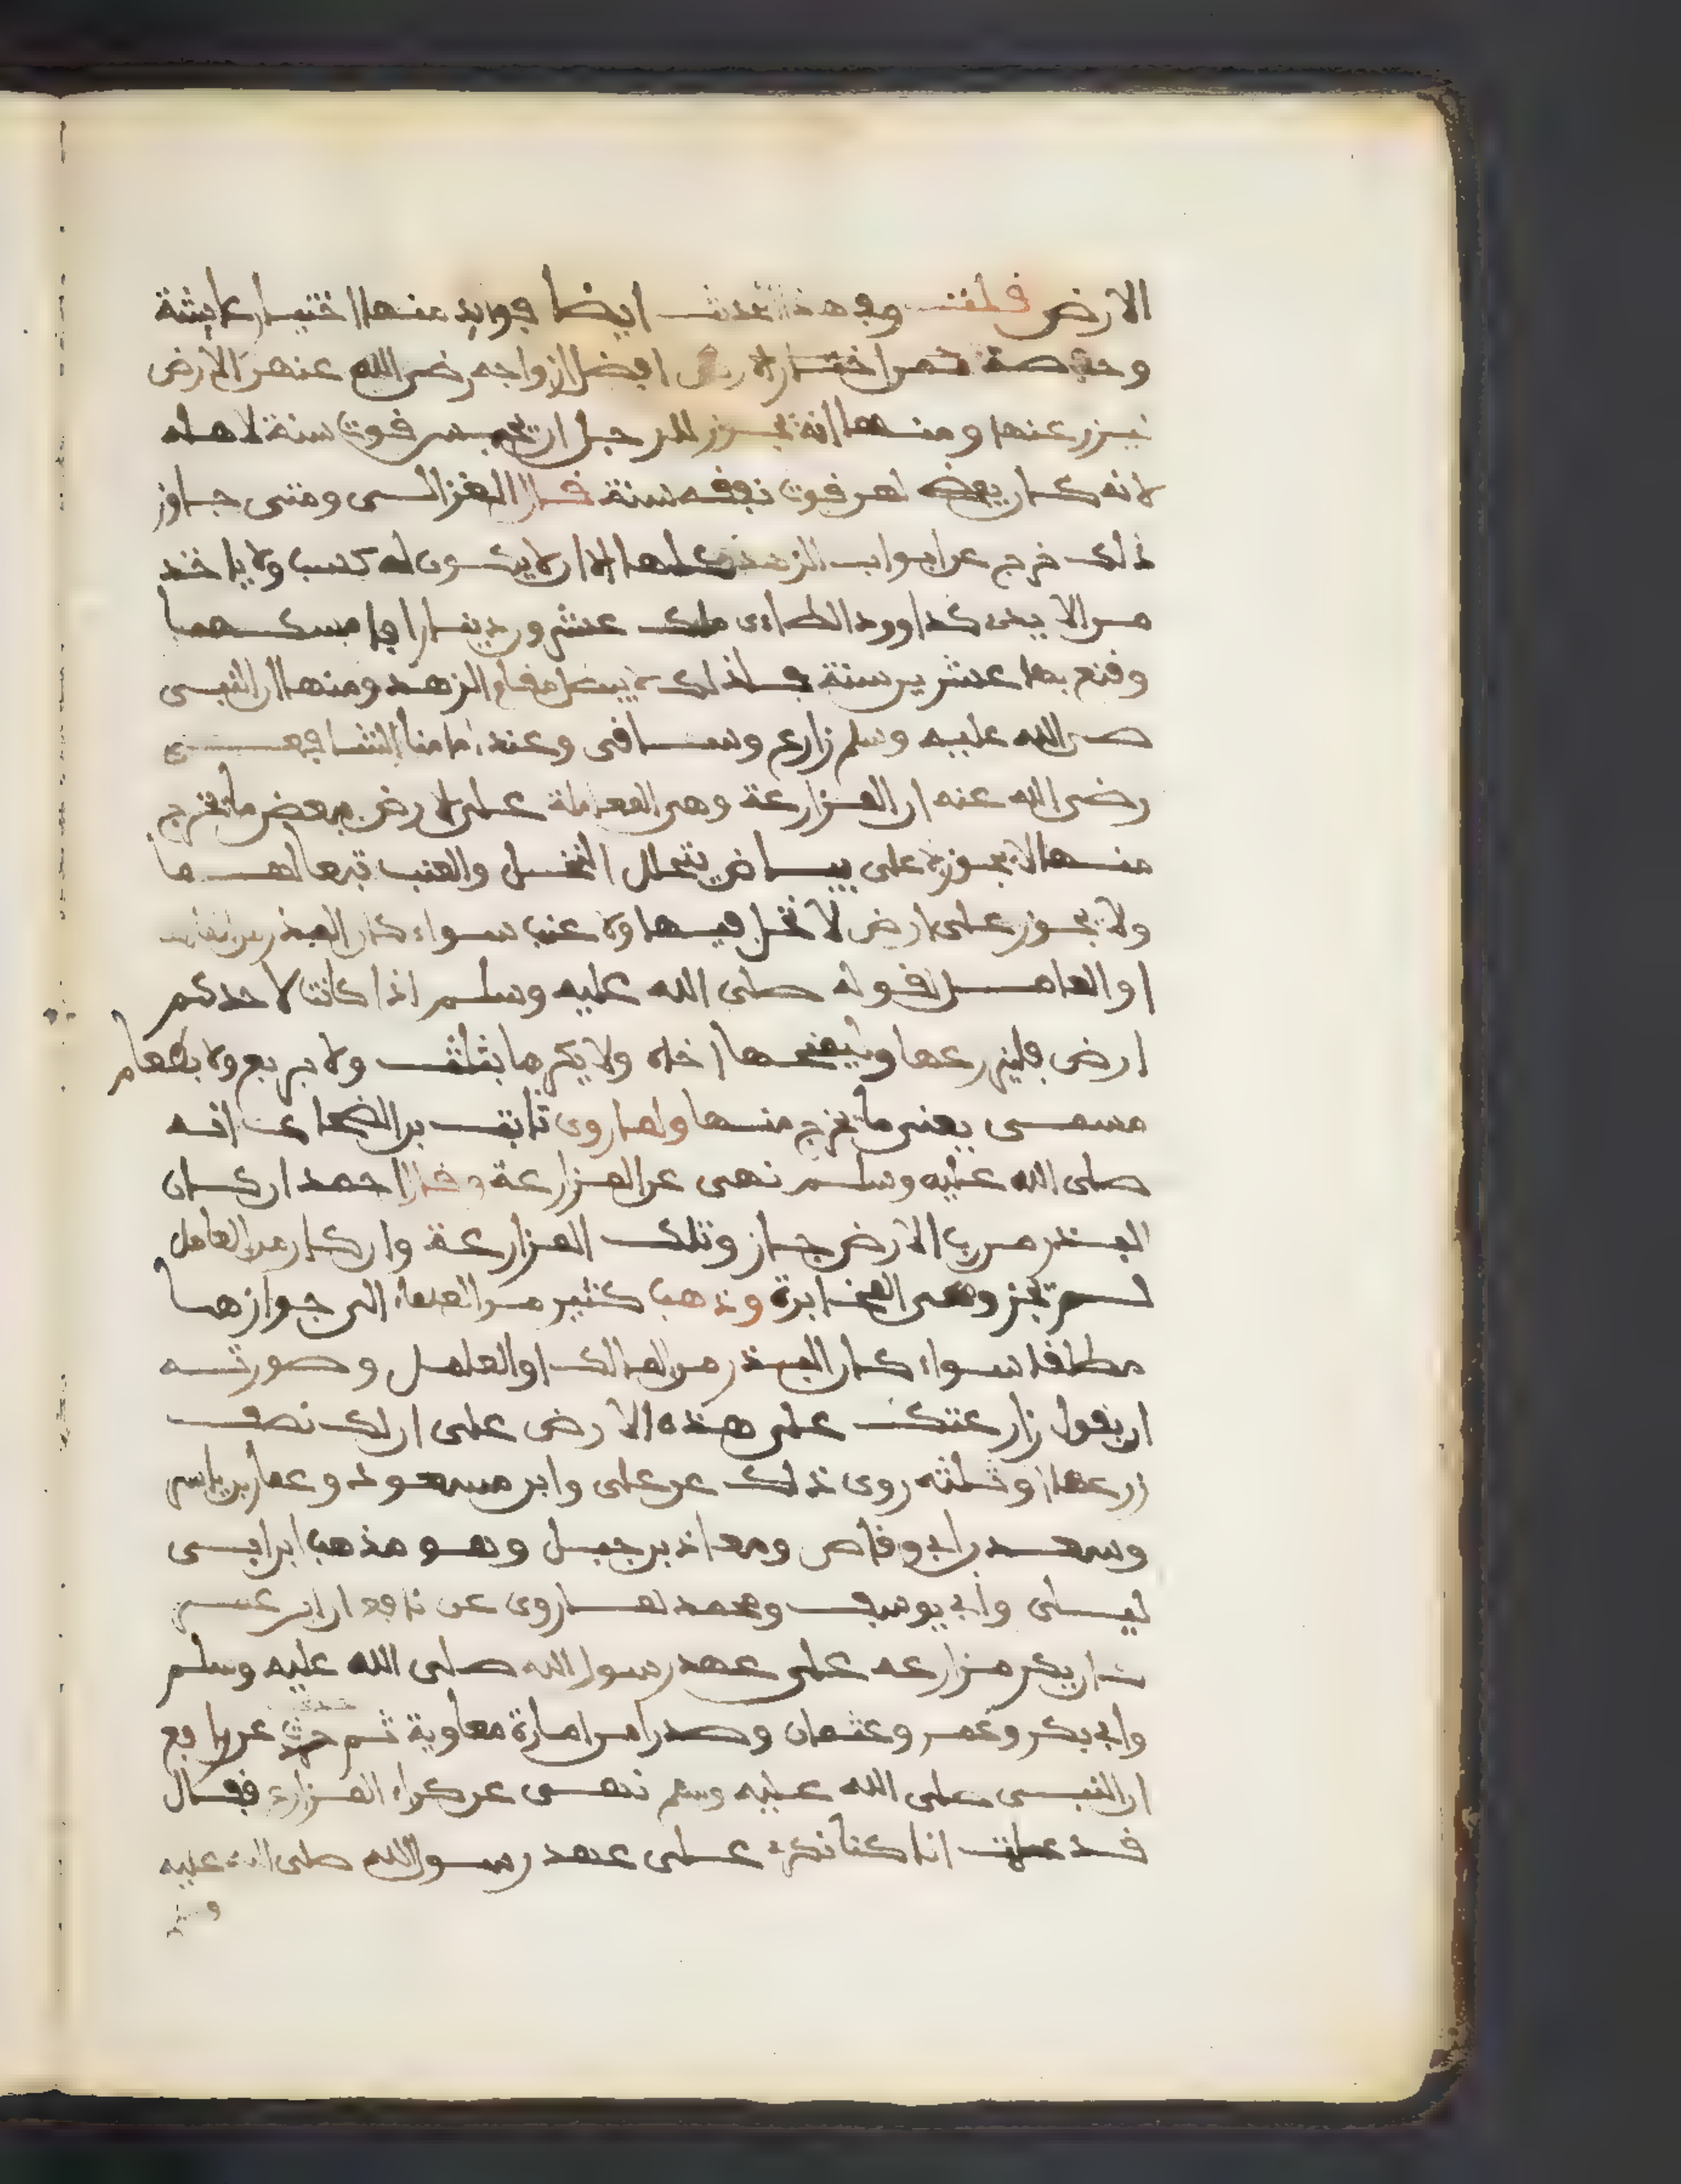 الارض قلت وفي هذا الحديث ايضا فوايد منها اختيار عايشة
وحفصة الارض افضل ازواجه رضى الله عنهن الارض
عنها ومنها انه يجوز للرجل ان يحبس قوت سنة لاهله
لانه كان يعطيهم قوت نفقه سنة قال الغزالى ومتى جاوز
ذلك خرج عن ابواب الزهد كلها الا ان لا يكون له كسب ولا ياخذ
من الا يدى كداوود الطاءى ملك عشرون دينارا فامسكها
وقنع بها عشرين سنة فذلك لا يبطل مقام الزهد ومنها ان النبى
صلى الله عليه وسلم زارع وساقى وعند امامنا الشافعى
رضى الله عنه ان المزارعة وهى المعاملة على الارض ببعض ما تخرج
منها لا يجوز الا على بياض يتخلل النخل والعنب تبعا لهما
ولا يجوز على ارض لا نخل فيها ولا عنب سواء كان البذر من المالك
او العامل لقوله صلى الله عليه وسلم اذا كانت لاحدكم
ارض فليزرعها وليمنحها اخاه ولا يكرها بثلث ولا بربع ولا بطعام
مسمى يعنى ما تخرج منها ولما روى ثابت بن الضحاك انه
صلى الله عليه وسلم نهى عن المزارعة وقال احمد ان كان
البذر من رب الارض جاز وتلك المزارعة وان كان من العامل
لم تجز وهى المخابرة وذهب كثير من العلماء الى جوازها
مطلقا سواء كان البذر من المالك او العامل وصورته
ان يقول زارعتك على هذه الارض على ان لك نصف
زرعها او ثلثه روى ذلك عن على وابن مسعود وعمار بن ياسر
وسعد بن ابى وقاص ومعاذ بن جبل وهو مذهب ابن ابى
ليلى وابى يوسف ومحمد لما روى عن نافع ان ابن عمر
كان يكرى مزارعه على عهد رسول الله صلى الله عليه وسلم
وابى بكر وعمر وعثمان وصدرا من امارة معاوية ثم حدث عن رافع
ان النبى صلى الله عليه وسلم نهى عن كراء المزارع فقال
قد علمت انا كنا نكرى على عهد رسول الله صلى الله عليه